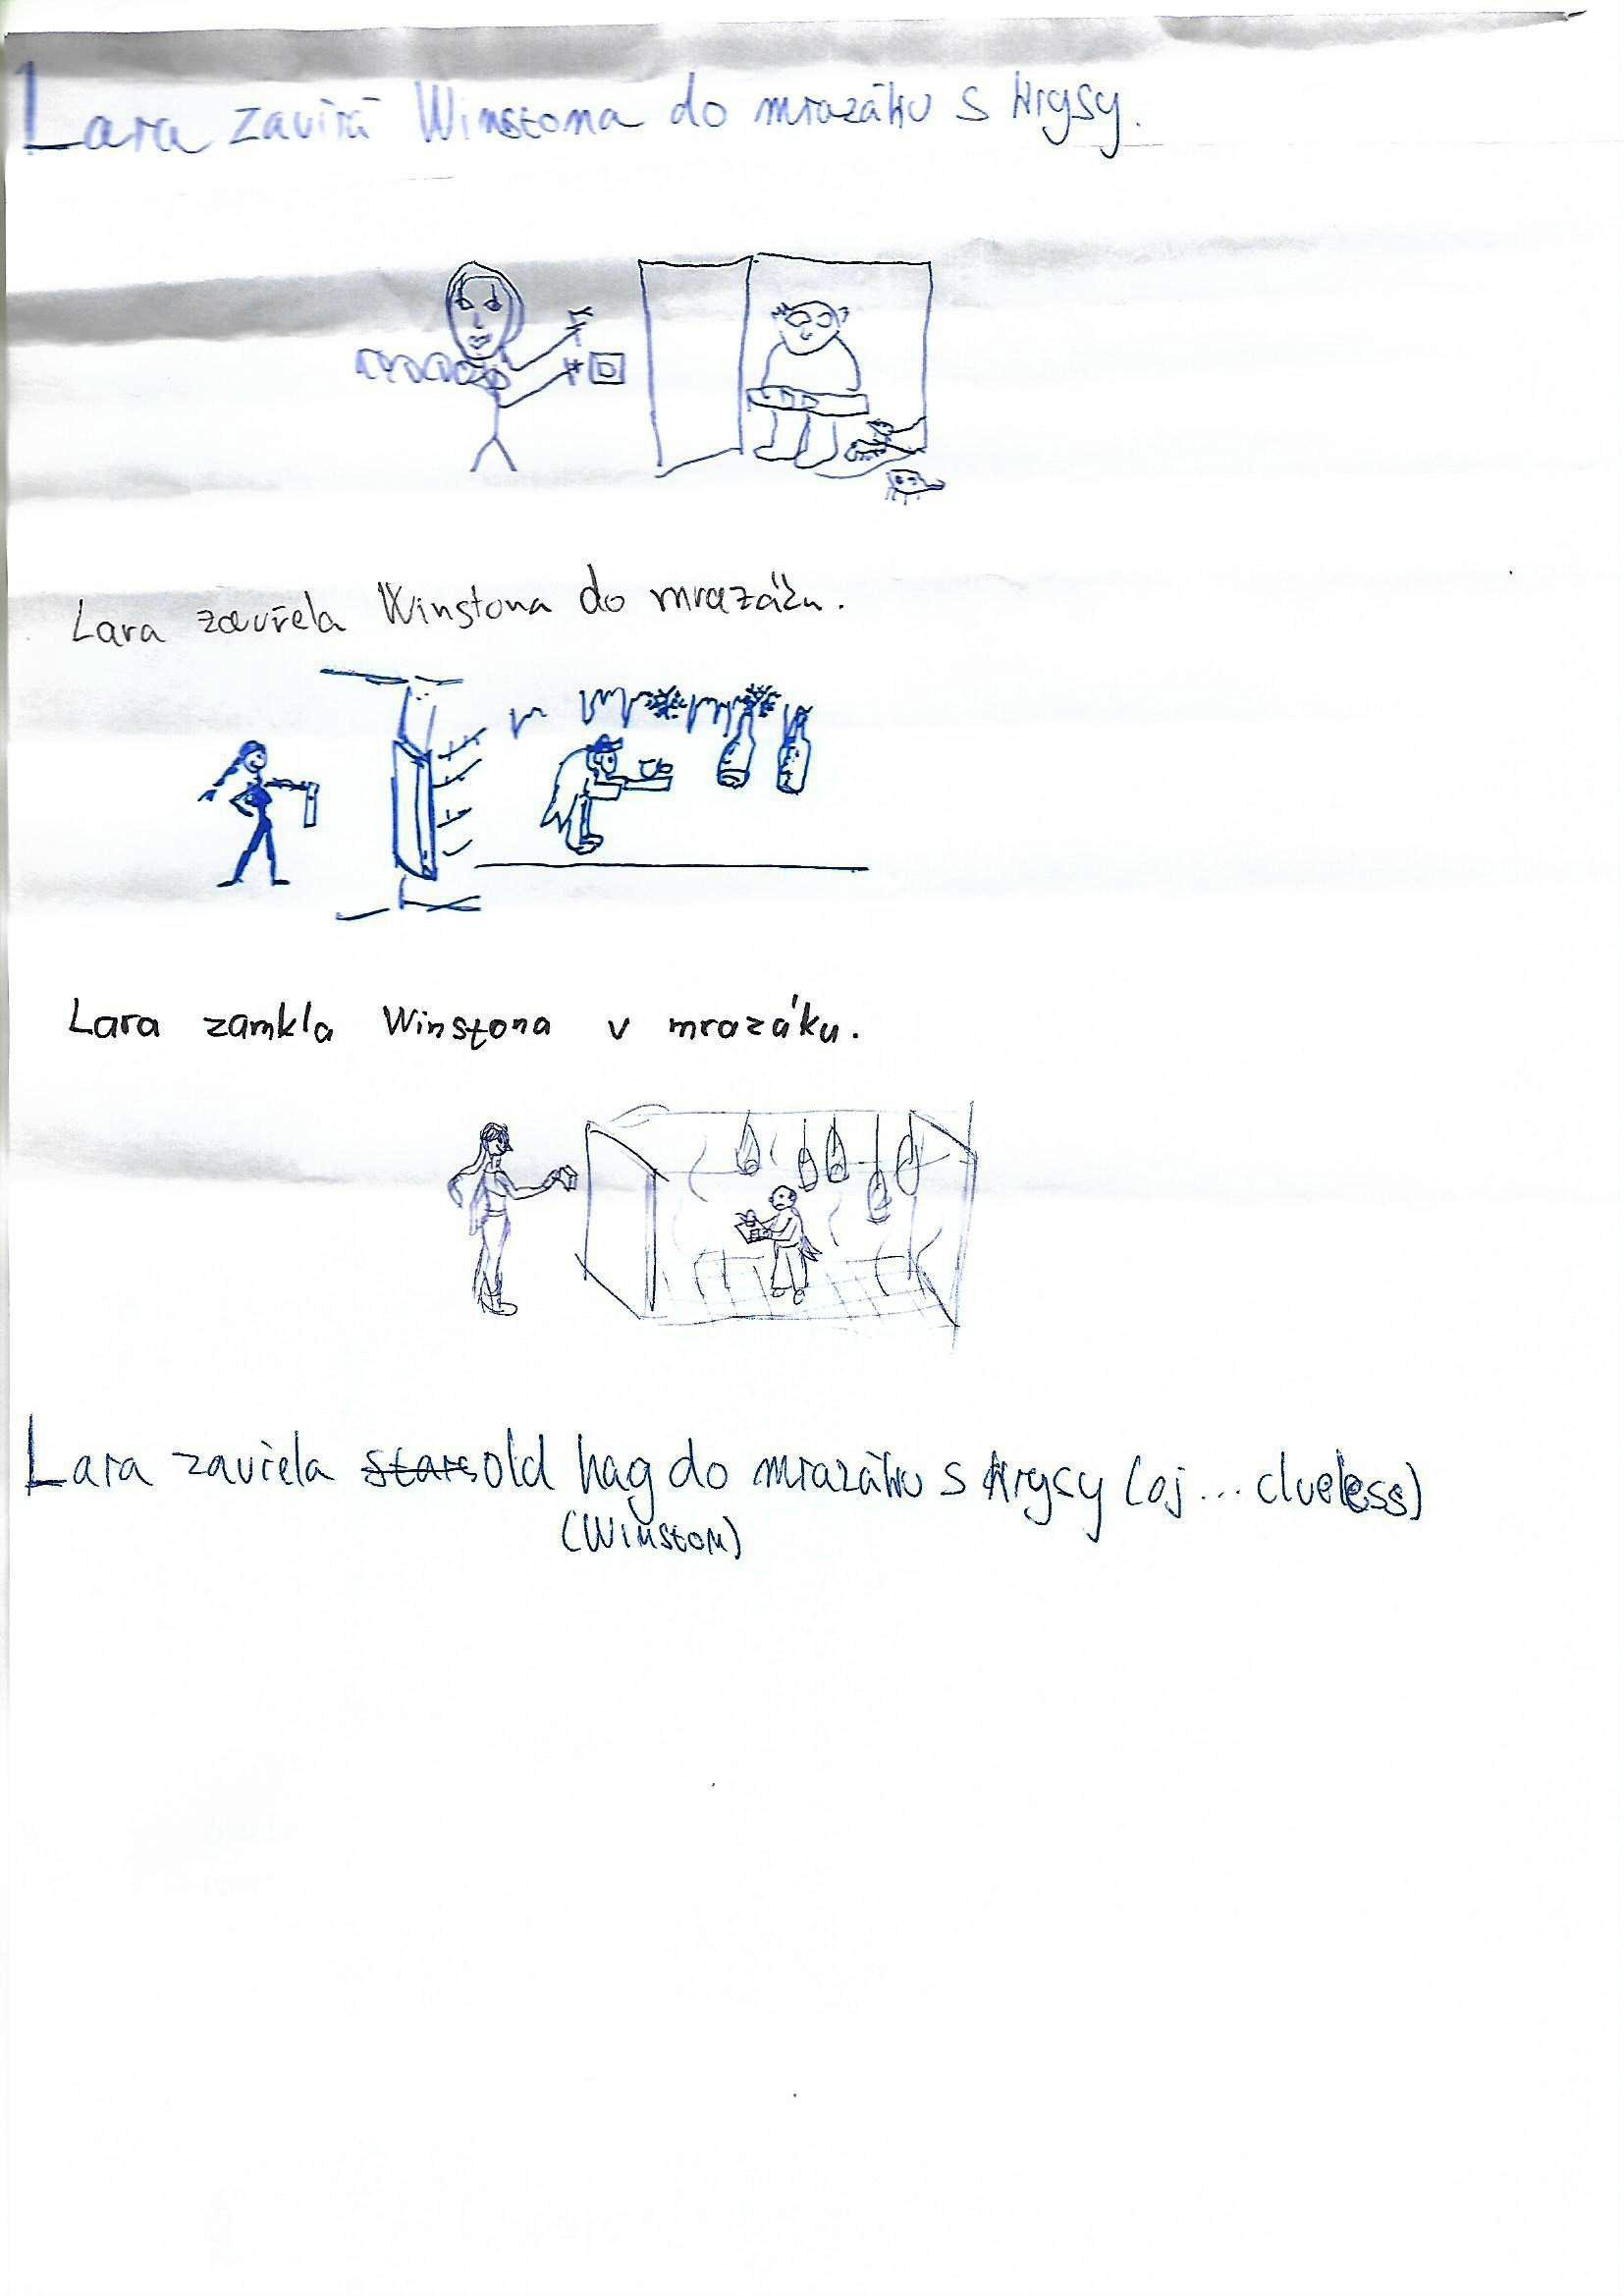 Lara zavírá Winstona do mrazáku s krysy.
Lara zavřela Winstona do mrazáku.
Lara zamkla Winstona v mrazáku.
Lara zavřela old hag do mrazáku s krysy (oj... clueless)
(Winston)